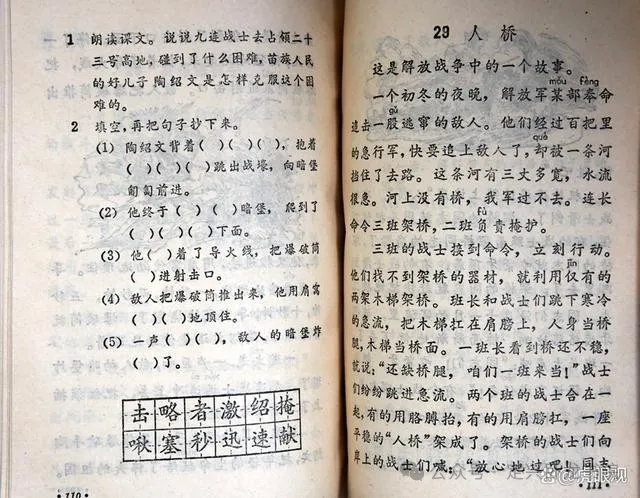 1 朗读课文。说说九连战士去占领二十
三号高地，碰到了什么困难，苗族人民
的好儿子陶绍文是怎样克服这个困
难的。
2 填空，再把句子抄下来。
(1) 陶绍文背着( )( )( )，抱着
( )( )( )跳出战壕，向暗堡
匍匐前进。
(2) 他终于( )( )暗堡，爬到了
( )( )下面。
(3) 他( )着了导火线，把爆破筒
( )进射击口。
(4) 敌人把爆破筒推出来，他用肩窝
( )( )地顶住。
(5) 一声( )( )，敌人的暗堡炸
( )了。
击略者激绍掩
啾塞秒迅速献
110
29 人桥
这是解放战争中的一个故事。
mǒu fèng
一个初冬的夜晚，解放军某部奉命
gǔ
追击一股逃窜的敌人。他们经过百把里
què
的急行军，快要追上敌人了，却被一条河
挡住了去路。这条河有三丈多宽，水流
很急。河上没有桥，我军过不去。连长
fù
命令三班架桥，二班负责掩护。
三班的战士接到命令，立刻行动。
jǐn
他们找不到架桥的器材，就利用仅有的
两架木梯架桥。班长和战士们跳下寒冷
的急流，把木梯扛在肩膀上，人身当桥
腿，木梯当桥面。一班长看到桥还不稳，
就说：“还缺桥腿，咱们一班来当！”战士
们纷纷跳进急流。两个班的战士合在一
起，有的用胳膊抬，有的用肩膀扛，一座
平稳的“人桥”架成了。架桥的战士们向
岸上的战士们喊：“放心地过吧！同志
111
公众号